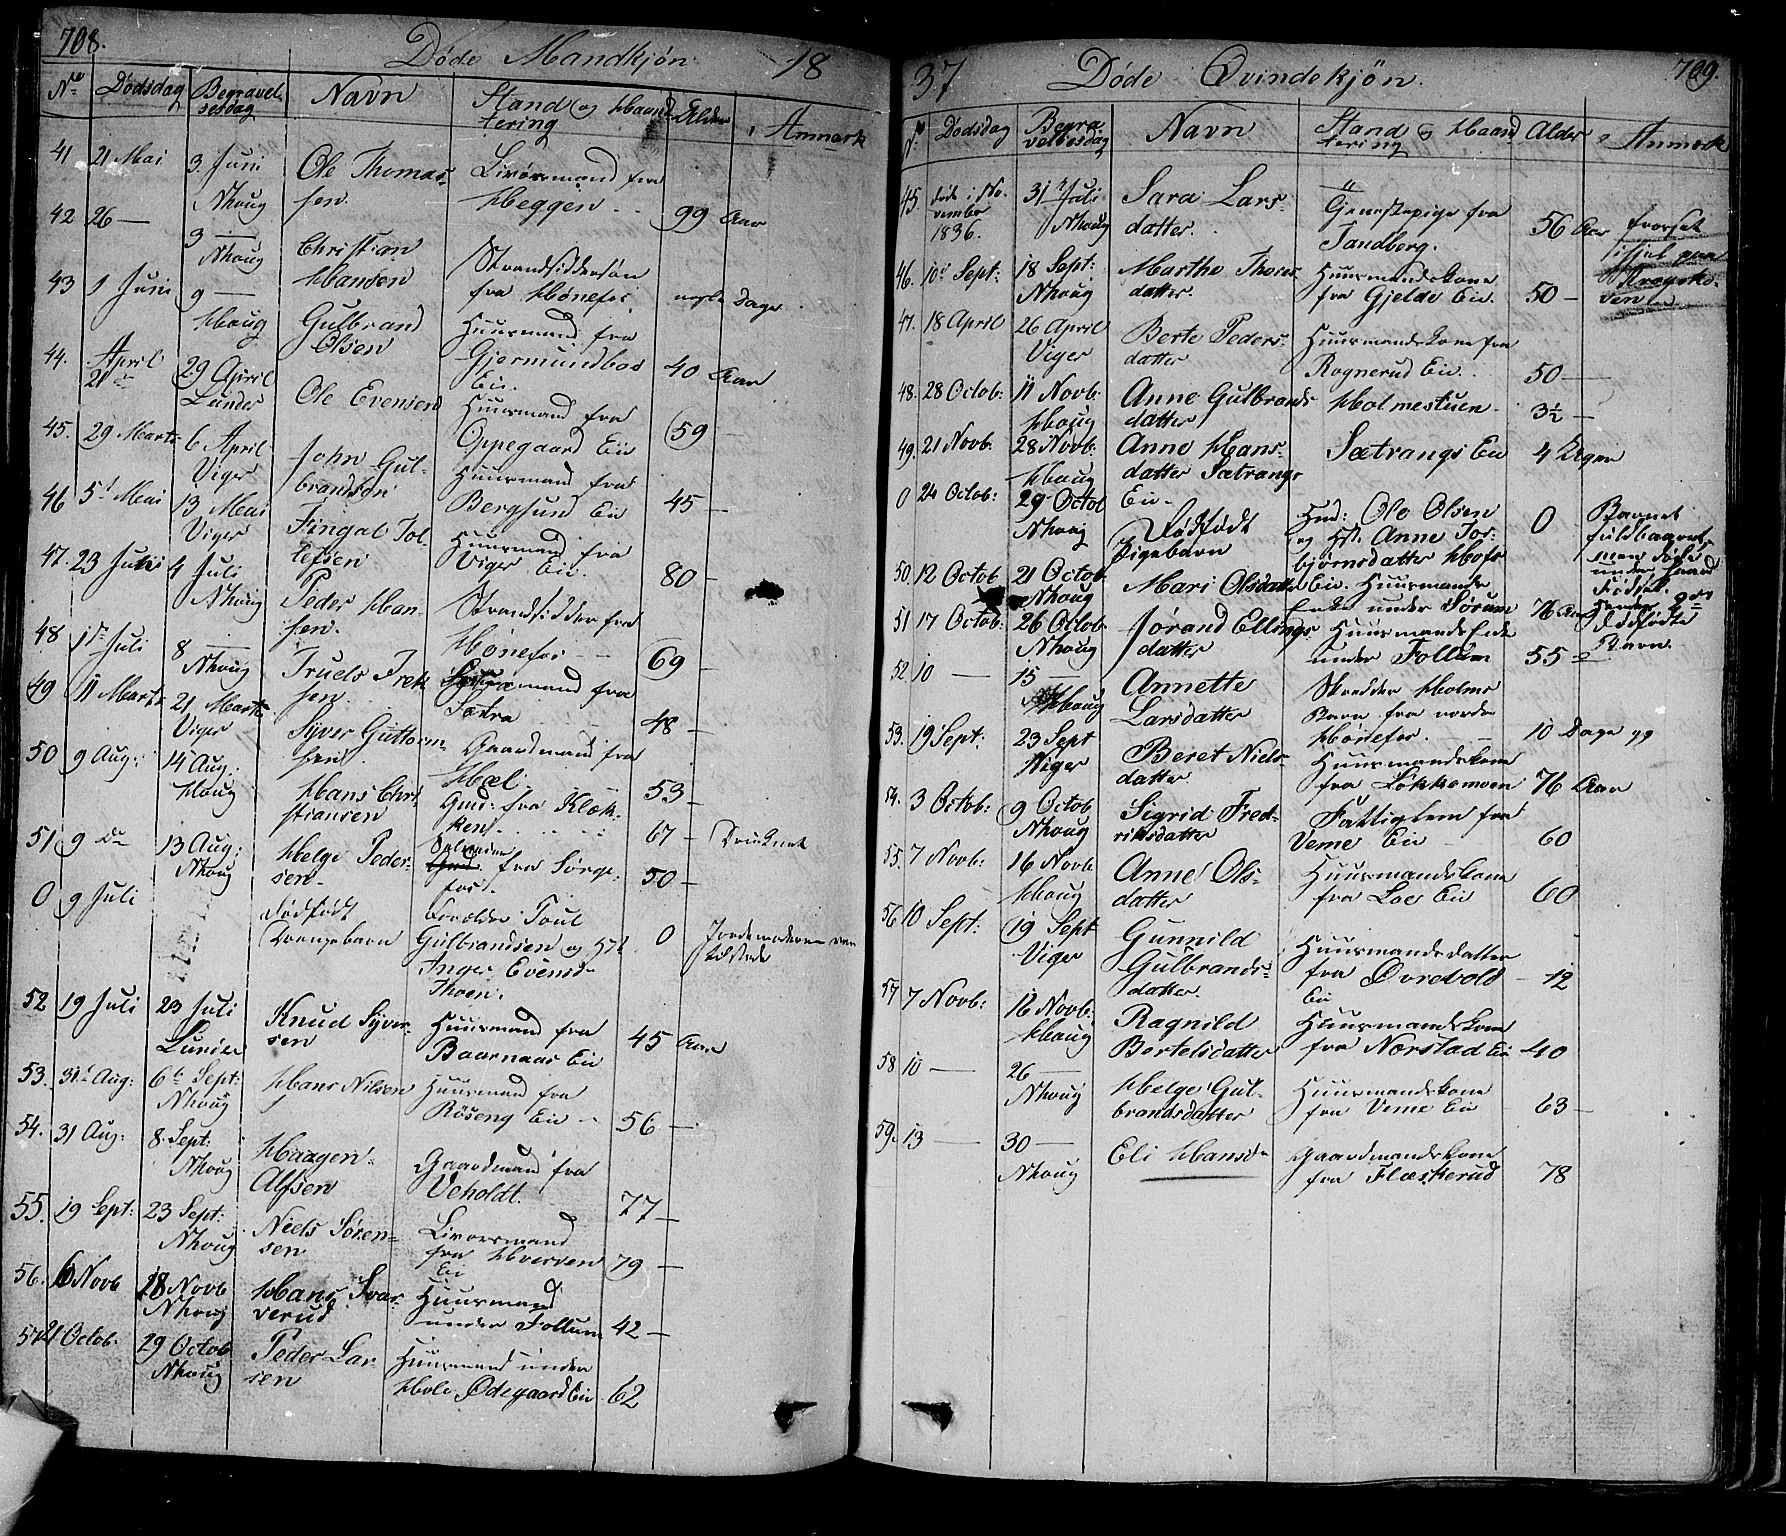 708.
Døde Mandkjøn 18
No Dødsdag Begravelsesdag Navn Stand og Haandtering Alder Anmærk
41 21 Mai 3. Juni Nhoug Ole Thomassen. Livørsmand fra Heggen 99 Aar
42 26 — 3 — Nhoug Christian Hansen Strandsiddersøn fra Hønefos nogle Dage
43 1 Juni 9 — Houg Gulbrand Olsen Huusmand fra Gjermundboe Eie. 40 Aar
44. April 21de 29 April Lunder Ole Evensen Huusmand fra Oppegaard Eie 59 —
45. 29 Marts 6 April Viger John Gulbrandsen Huusmand fra Bergsund Eie 45 —
46 5t Mai 13 Mai Viger Fingal Tollefsen Huusmand fra Viger Eie. 80 —
47. 23 Juni 4 Juli Nhoug Peder Hansen. Strandsidder fra Hønefos 69 —
48 1ste Juli 8 — Nhoug Truels Sen. Huusmand fra Sætra 48 —
49 11 Marts 21 Marts Viger Syver Guttormsen. Gaardmand fra Hæl 53 —
50 9 Aug: 14 Aug: Houg Hans Christiansen Gmd: fra Klækken. 67 — Druknet
51 9 De 13 Aug: Nhoug Helge Pedersen fra Sørgefos. 50 —
0 9 Juli Dødfødt Drengebarn Forældre Poul Gulbrandsen og Hst. Inger Evensd. Thoen. 0 Jordemoderen var tilstede
52 19 Juli 23 Juli Lunder Knud Syversen Huusmand fra Baarnaas Eie 45 Aar
53. 31t Aug: 6t Sept: Nhoug Hans Nilsen Huusmand fra Røseng Eie 56 —
54. 31 Aug: 8. Sept: Nhoug Haagen Alfsen Gaardmand fra Veholdt. 77 —
55. 19 Sept: 23 Sept: Nhoug Niels Sørensen Livørsmand fra Hverven Eie 79 —
56. 6 Novb 18 Novb Nhoug Hans Svarverud Huusmand under Follum 42 —
57. 21 Octob. 29 Octob Nhoug Peder Larsen Huusmand under Hole Ødegaard Eie 62
37 Døde Qvindekjøn. 709.
No Dødsdag Begravelsesdag Navn Stand og Haandtering Alder Anmærk
45. døde i November 1836. 31te Juli Nhoug Sara Larsdatter. Tjenestepige fra Tandberg. 56 Aar
46. 10de Sept: 18 Sept: Nhoug Marthe Thoresdatter. Huusmandskone fra Gjelde Eie. 50 —
47. 18 April 26 April Viger Berte Pedersdatter Huusmandskone fra Rognerud Eie. 50 —
48. 28 Octob: 11 Novb: Houg Anne Gulbrandsdatter Holmestuen 3½ —
49. 21 Novb. 28 Novb. Houg Anne Hansdatter Sætrangs Eie Sætrangs Eie 4 Uger
0 24 Octob: 29 Octob Nhoug Dødfødt Pigebarn Hmd: Ole Olsen og Hst. Anne Torbjørnsdatter Hofs Eie. 0 Barnet fuldbaaret, men døde under Fødsel. Dødfødte Barn.
50. 12 Octob 21 Octob Nhoug Mari Olsdatter Huusmands Enke under Sørum 76 Aar
51 17 Octob: 26 Octob Nhoug Jorand Ellingsdatter Huusmandsenke under Follum 55 —
52. 10 — 15 — Houg Annette Larsdatter Skredder Holms Barn fra nordre Hønefos. 10 Dage
53. 19 Sept. 23 Sept Viger Beret Nielsdatter Huusmandskone fra Løkkemoen 76 Aar
54. 3 Octob: 9 Octob Nhoug Sigrid Fredriksdatter Fattiglem fra Veme Eie 60
55. 7 Novb: 16 Novb. Houg Anne Olsdatter Huusmandskone fra Loe Eie 60
56 10 Sept: 19 Sept Viger Gunnild Gulbrandsdatter. Huusmandsdatter fra Øvrevold Eie 12
57 7 Novb: 16 Novb: Houg Ragnild Bertelsdatter Huusmandskone fra Nærstad Eie 40
58 10 — 26 — Nhoug Helge Gulbrandsdatter Huusmandskone fra Veme Eie 63 —
59. 13 — 30 — Nhoug Eli Hansd. Gaardmandskone fra Flæskerud 78